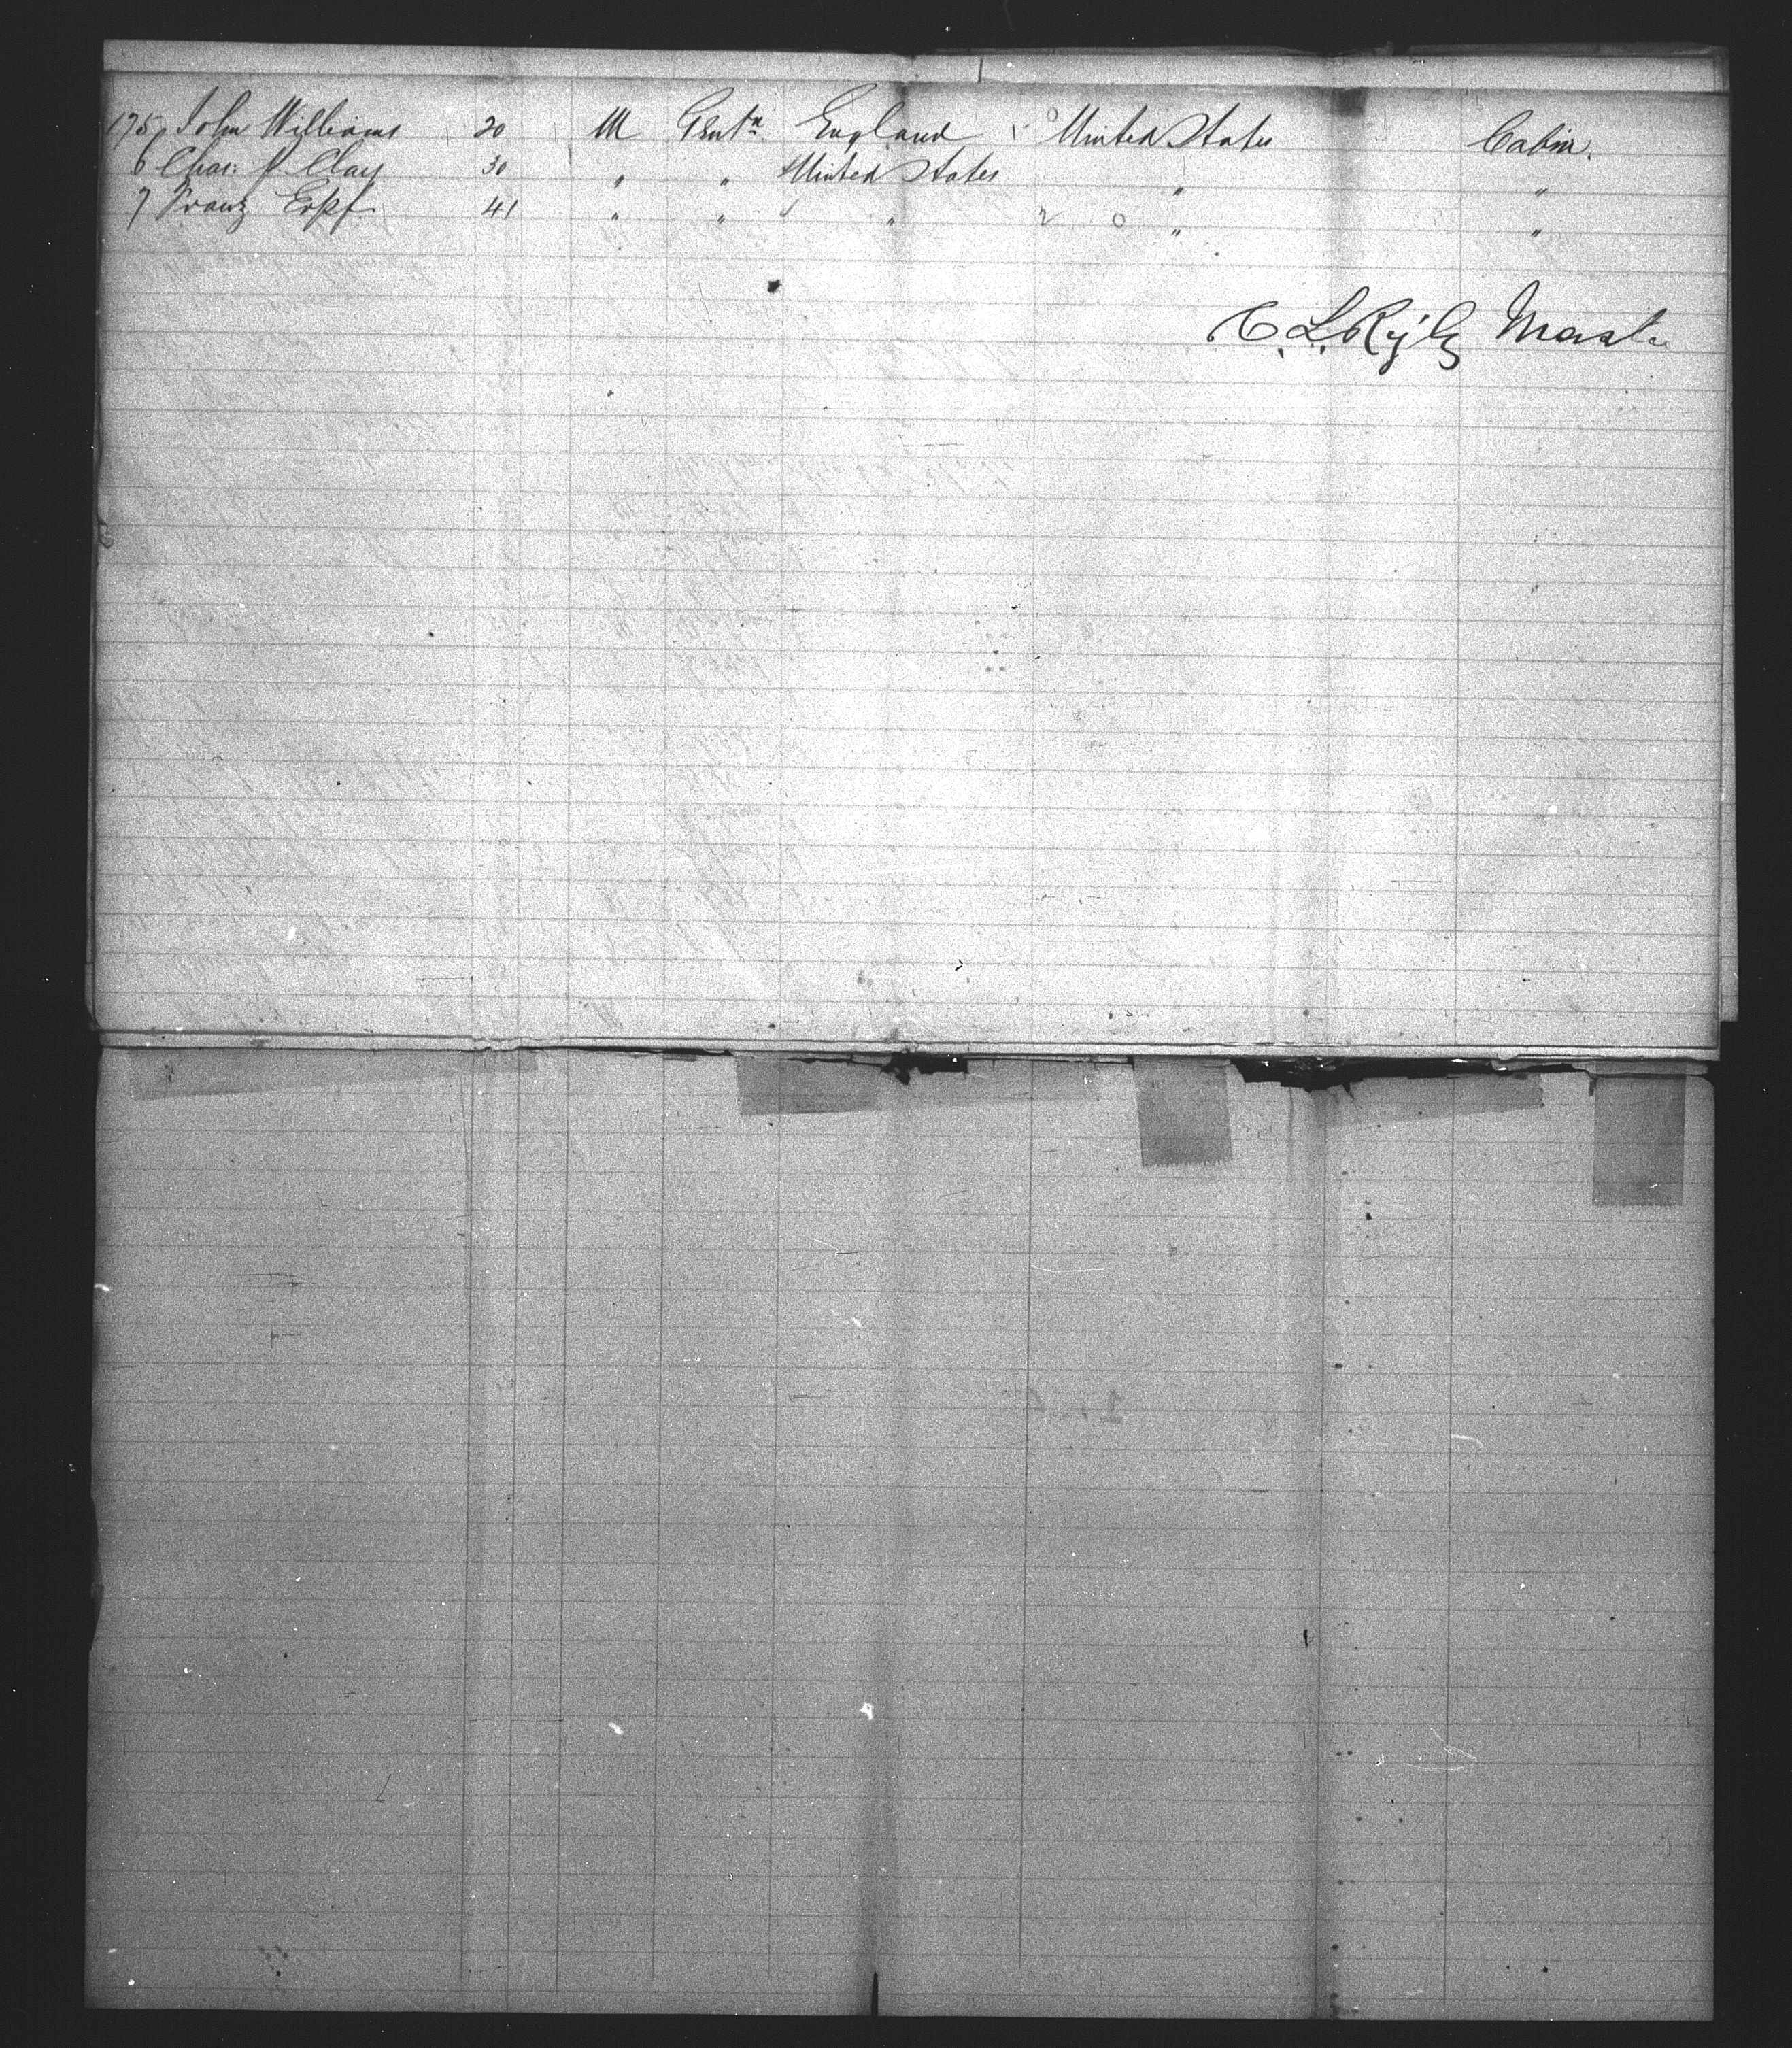 175 John Williams 20 M Gentn England United States Cabin.
6 Chas: P Clay 30 " " United States " "
7 Franz Erpf 41 " " " 2 0 " "
C. L. Rigby Master